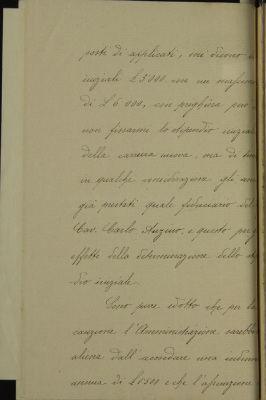 posti di applicati, mi dicono
iniziale £ 5000 con un massimo
di £ 6000, con preghiera però
non fissarmi lo stipendio iniziale
della carriera nuova, ma di
in qualche considerazione gli anni
già prestati quale fiduciario del
Cav. Carlo e questo
effetti della determinazione dello
dio iniziale.
Sono pure edotto che per la
cauzione l'Amministrazione sarebbe
aliena dall'accordare una
annua di £ 1500 e che l'assunzione